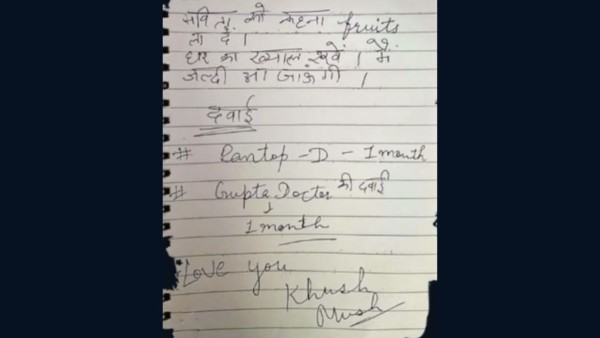 सविता को कहना fruits
ला दे।
घर का ख्याल रखें। मैं
जल्दी आ जाऊंगी।
दवाई
# Pantop-D - 1 month
# Gupta Doctor की दवाई
↓
1 month
Love you
Khush